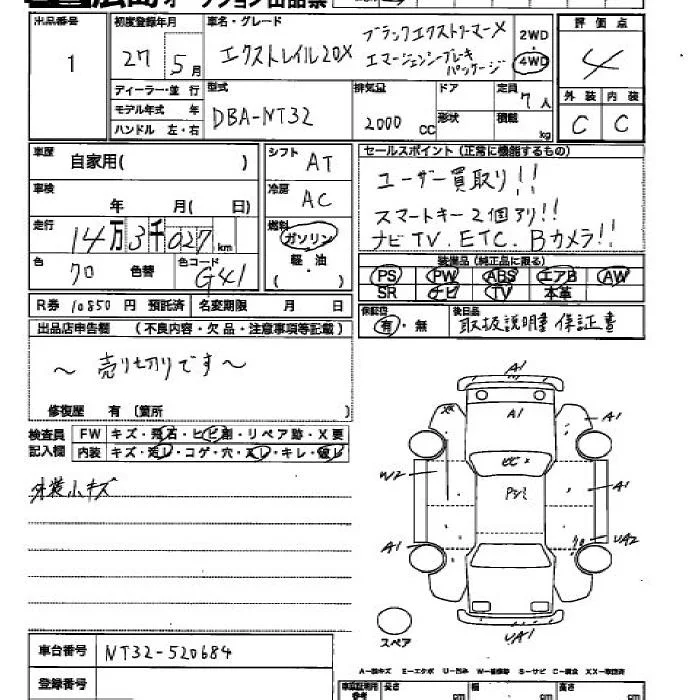 広島オークション出品票
出品番号 初度登録年月 車名・グレード 評価点
1 27年5月 エクストレイル20X ブラックエクストリーマーX 2WD 4
エマージェンシーブレーキ 4WD
パッケージ
ディーラー・並行 型式 排気量 ドア 定員 7人 外装 内装
モデル年式 年 DBA-NT32 2000 CC 形状 積載 C C
ハンドル 左・右 kg
車歴 自家用( ) シフト AT セールスポイント(正常に機能するもの)
車検 年 月( 日) 冷房 AC ユーザー買取り!!
走行 14万3千027km 燃料 ガソリン スマートキー2個あり!!
軽・油 ナビTV.ETC.Bカメラ!!
色 クロ 色替 色コード G41 ( )
装備品(純正品に限る)
PS PW ABS エアB AW
SR ナビ TV 本革
R券 10850円 預託済 名変期限 月 日
保証書 有・無 後日品 取扱説明書 保証書
出品店申告欄 (不良内容・欠品・注意事項等記載)
〜 売り切りです 〜
修復歴 有 〔箇所 〕
検査員 FW キズ・飛石・ヒビ割・リペア跡・X要
記入欄 内装 キズ・汚レ・コゲ・穴・スレ・キレ・破レ
外装小キズ
A1
A1
A1
W2
ヒビ×
A1
A1
UA2
UA1
スペア
車台番号 NT32-520684
登録番号
A−線キズ E−エクボ U−凹み W−補修跡 S−サビ C−腐食 XX−取替済
長さ cm 幅 cm 高さ cm